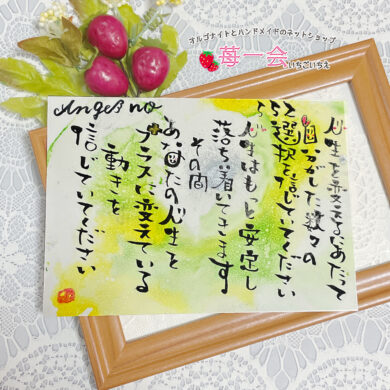 オルゴナイトとハンドメイドのネットショップ
苺一会
いちごいちえ
Angel no
552
人生を変えるにあたって
自分がした数々の
選択を信じていてください
人生はもっと安定し
落ち着いてきます
その間
あなたの人生を
プラスに変えている
動きを
信じていてください